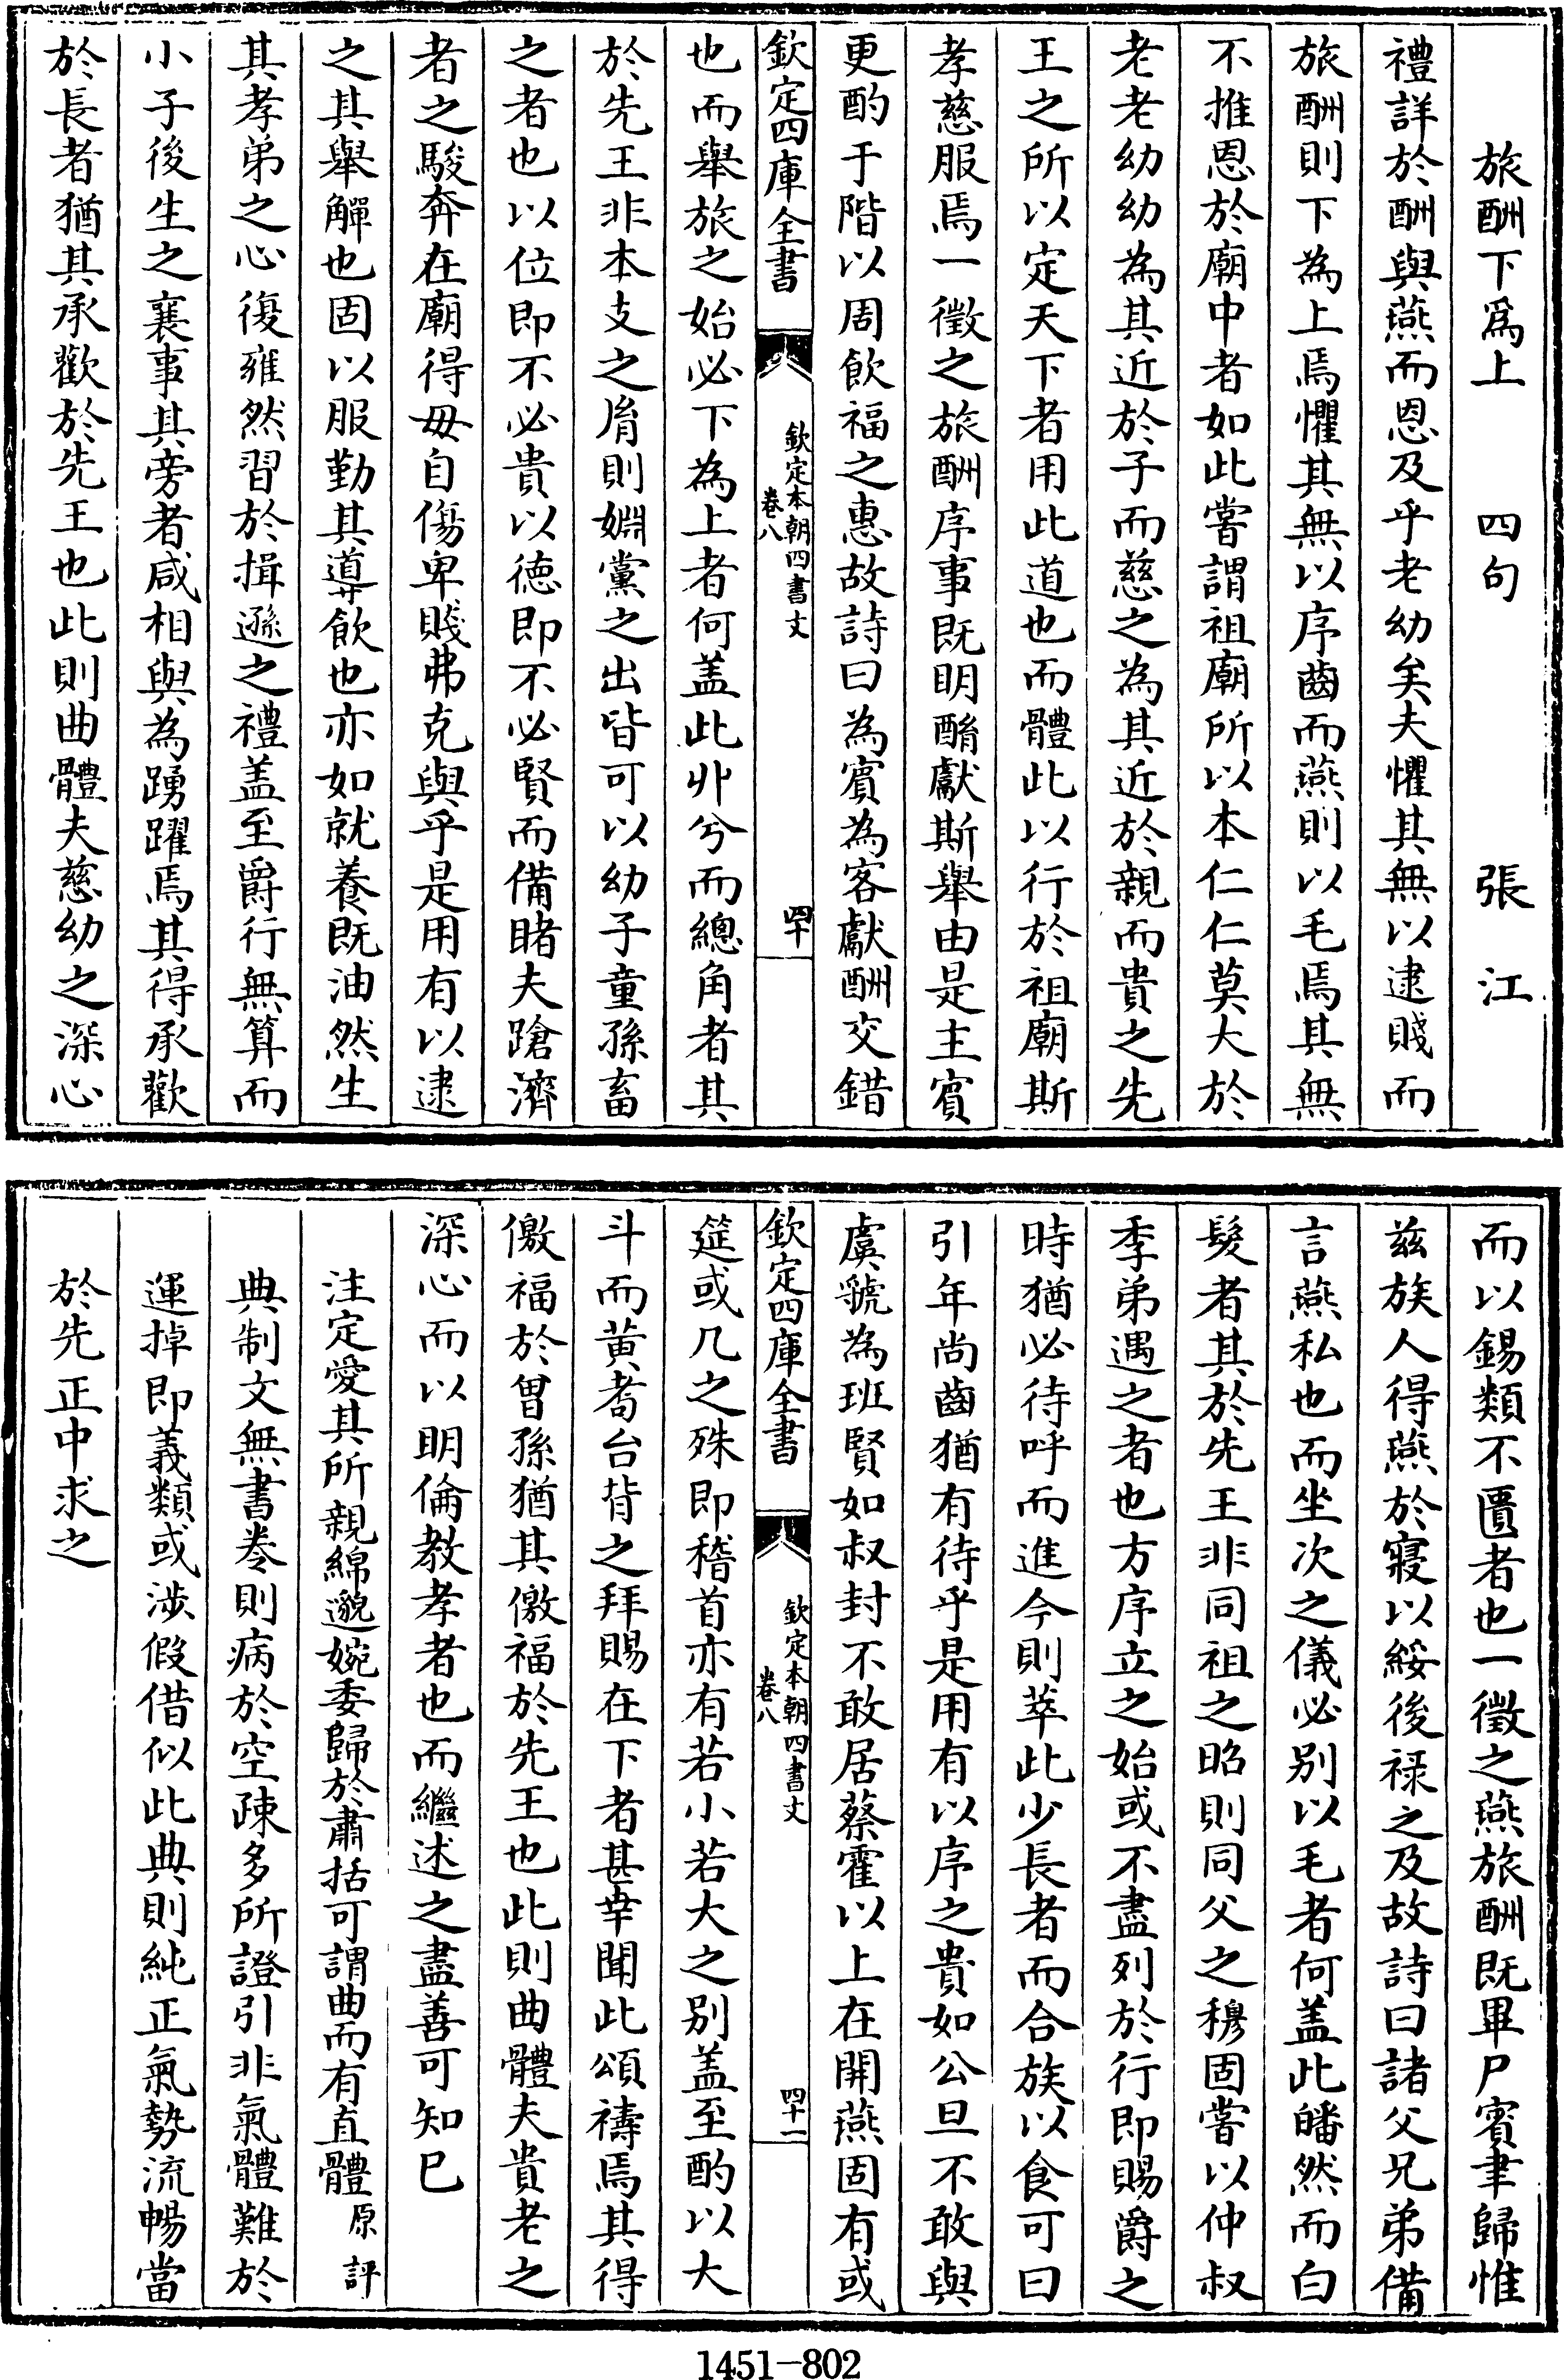 旅酬下爲上　四句　張江
禮詳於酬與燕而恩及乎老幼矣夫懼其無以逮賤而
旅酬則下為上焉懼其無以序齒而燕則以毛焉其無
不推恩於廟中者如此嘗謂祖廟所以本仁仁莫大於
老老幼幼為其近於子而慈之為其近於親而貴之先
王之所以定天下者用此道也而體此以行於祖廟斯
孝慈服焉一徵之旅酬序事既明酳獻斯舉由是主賓
更酌于階以周飲福之惠故詩曰為賓為客獻酬交錯
欽定四庫全書　欽定本朝四書文　卷八　四十
也而舉旅之始必下為上者何盖此丱兮而總角者其
於先王非本支之胤則婣黨之出皆可以幼子童孫畜
之者也以位即不必貴以德即不必賢而備睹夫蹌濟
者之駿奔在廟得毋自傷卑賤弗克與乎是用有以逮
之其舉觶也固以服勤其導飲也亦如就養既油然生
其孝弟之心復雍然習於揖遜之禮盖至爵行無算而
小子後生之襄事其旁者咸相與為踴躍焉其得承歡
於長者猶其承歡於先王也此則曲體夫慈幼之深心
而以錫類不匱者也一徵之燕旅酬既畢尸賓聿歸惟
兹族人得燕於寢以綏後禄之及故詩曰諸父兄弟備
言燕私也而坐次之儀必别以毛者何盖此皤然而白
髮者其於先王非同祖之昭則同父之穆固嘗以仲叔
季弟遇之者也方序立之始或不盡列於行即賜爵之
時猶必待呼而進今則萃此少長者而合族以食可曰
引年尚齒猶有待乎是用有以序之貴如公旦不敢與
虞虢為班賢如叔封不敢居蔡霍以上在開燕固有或
欽定四庫全書　欽定本朝四書文　卷八　四十一
筵或几之殊即稽首亦有若小若大之别盖至酌以大
斗而黄耉台背之拜賜在下者甚幸聞此頌禱焉其得
徼福於曾孫猶其徼福於先王也此則曲體夫貴老之
深心而以明倫教孝者也而繼述之盡善可知已
注定愛其所親綿邈婉委歸於肅括可謂曲而有直體原評
典制文無書卷則病於空疎多所證引非氣體難於
運掉即義類或涉假借似此典則純正氣勢流暢當
於先正中求之
1451-802